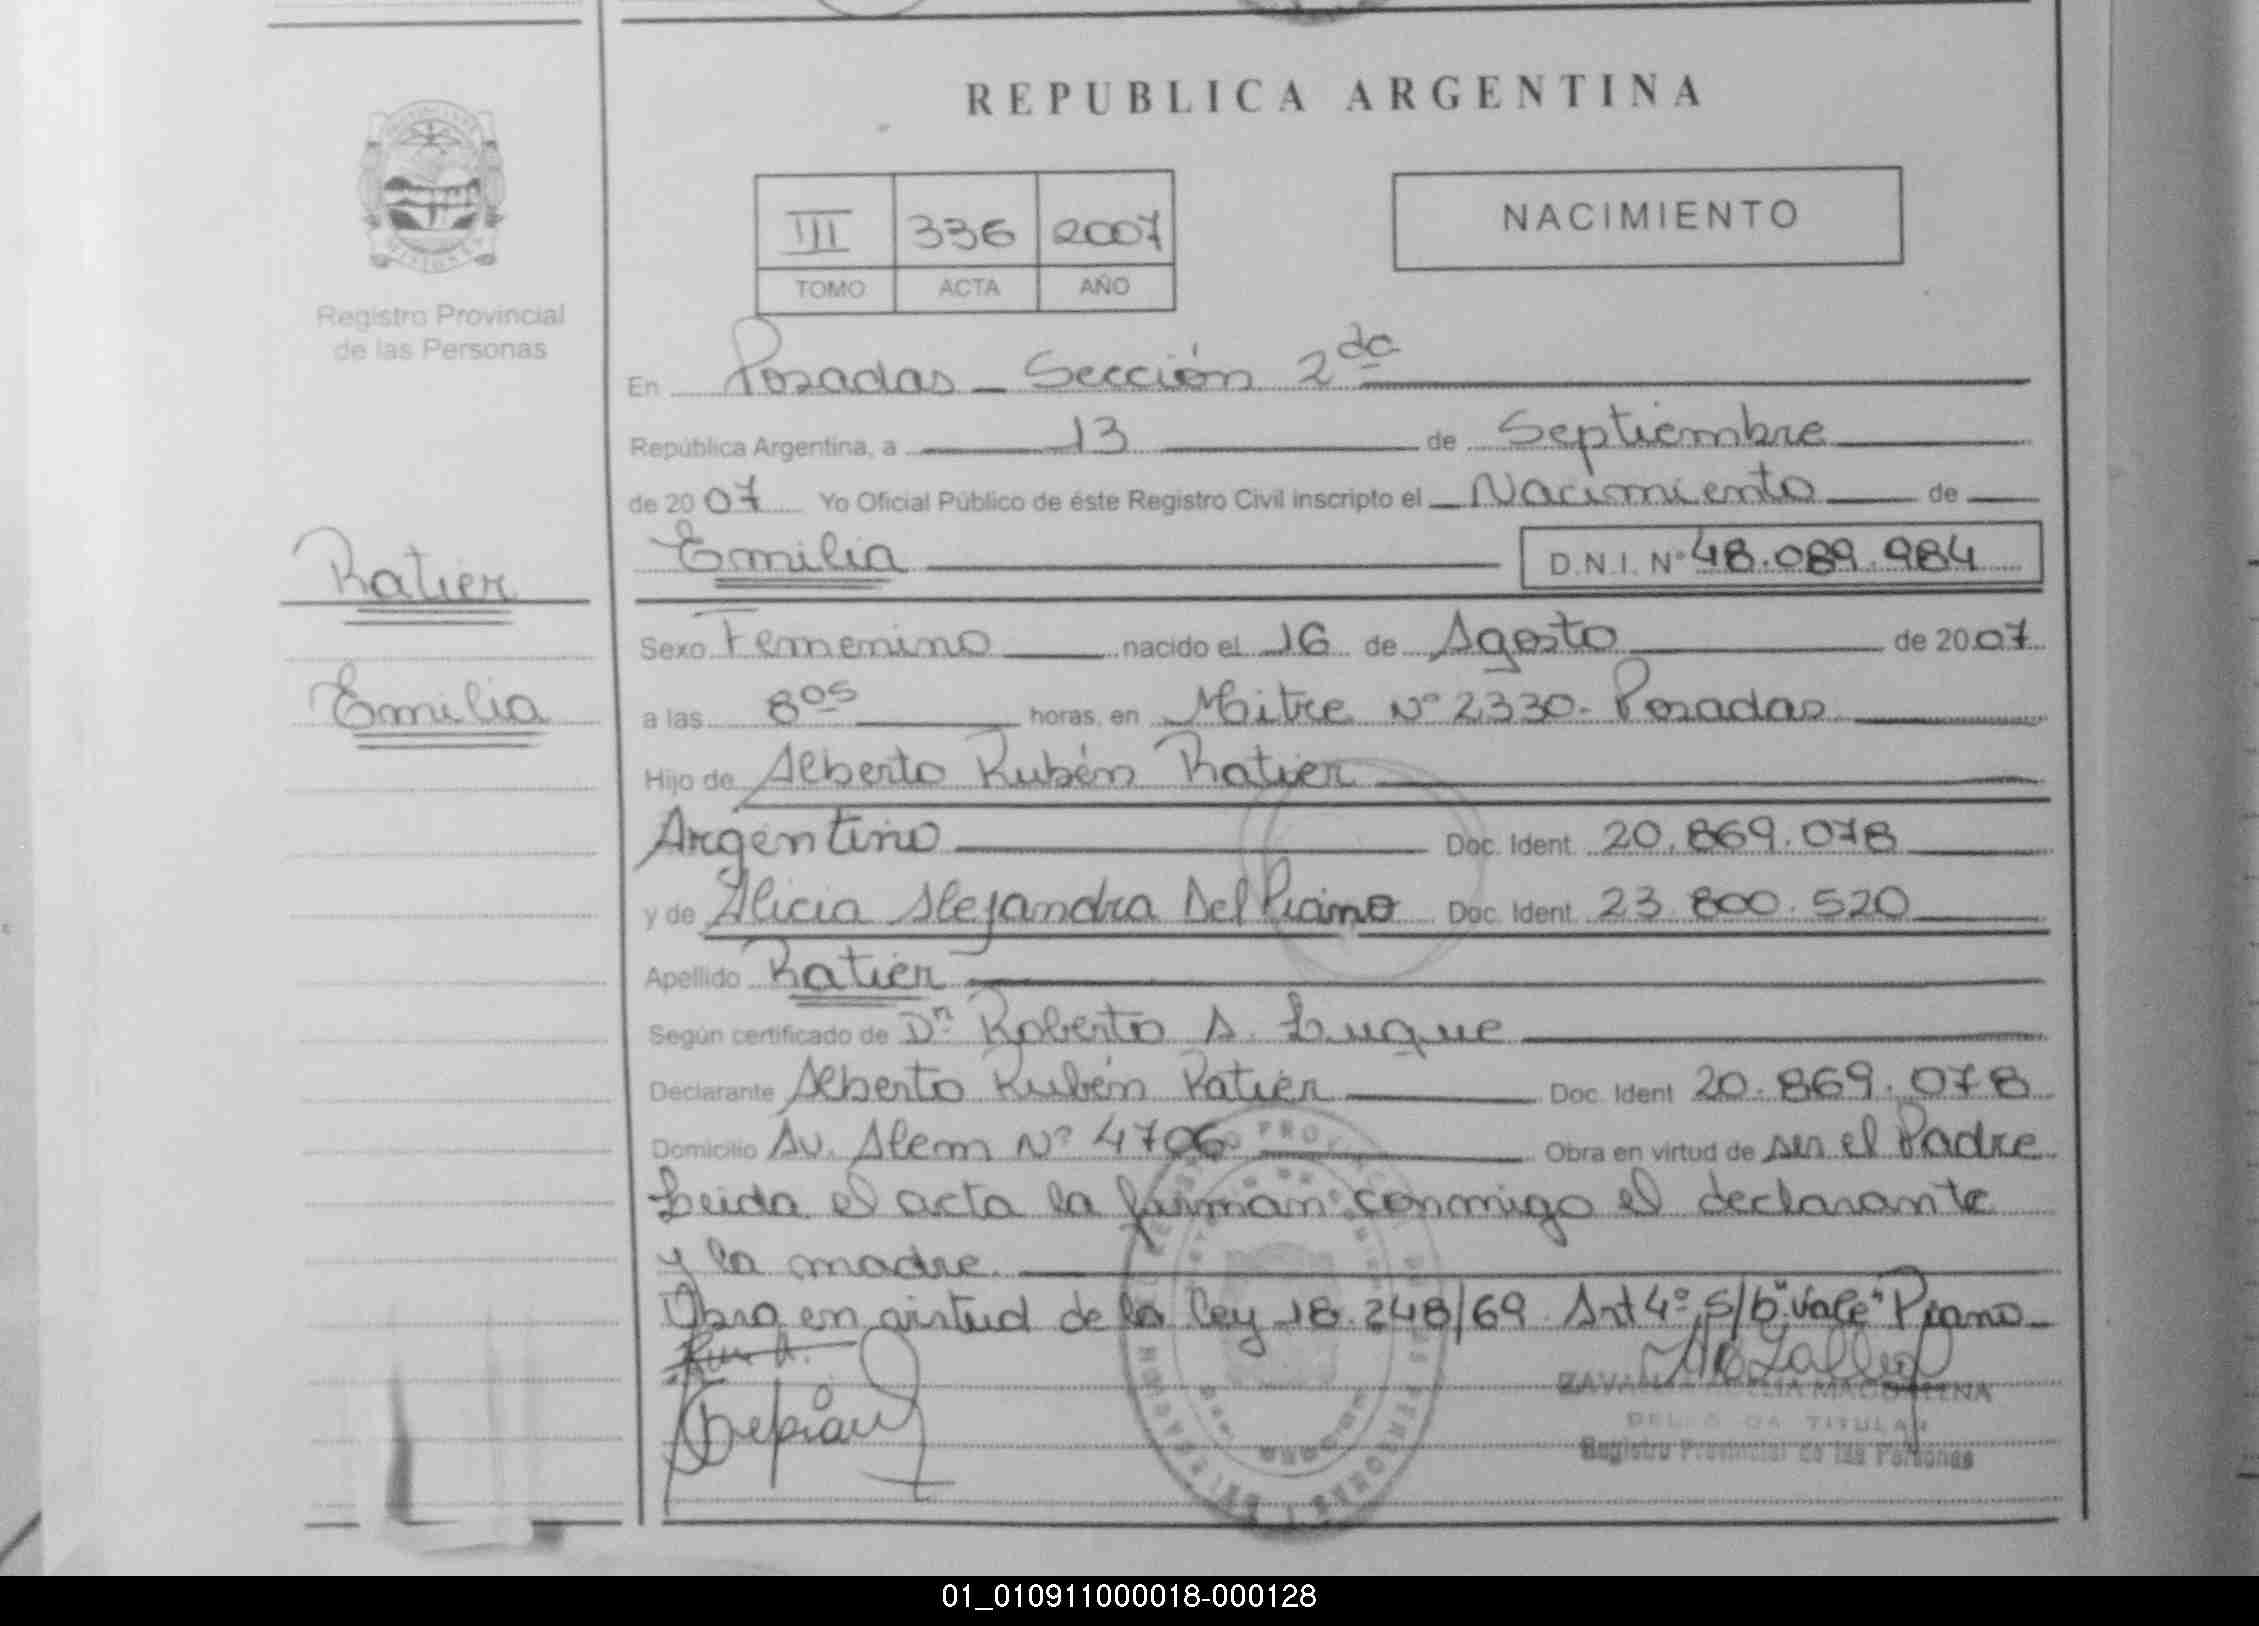 REPUBLICA ARGENTINA
III 336 2007
TOMO ACTA AÑO
NACIMIENTO
Registro Provincial
de las Personas
En Posadas - Sección 2da
República Argentina, a 13 de Septiembre
de 2007 Yo Oficial Público de éste Registro Civil inscripto el Nacimiento de
Emilia D.N.I. Nº 48.089.984
Ratier
Emilia
Sexo Femenino nacido el 16 de Agosto de 2007
a las 8os horas, en Mitre Nº 2330- Posadas
Hijo de Alberto Rubén Ratier
Argentino Doc. Ident. 20.869.078
y de Alicia Alejandra Del Piano Doc. Ident. 23.800.520
Apellido Ratier
Según certificado de Dn Roberto A. Luque
Declarante Alberto Rubén Ratier Doc. Ident 20.869.078
Domicilio Av. Alem Nº 4706 Obra en virtud de ser el Padre
Leida el acta la firman conmigo el declarante
y la madre.
Obra en virtud de la ley 18.248/69 Art 4º, S/b "vale" Piano
MAGDALENA
TITULAR
Registro Provincial de las Personas
01_010911000018-000128